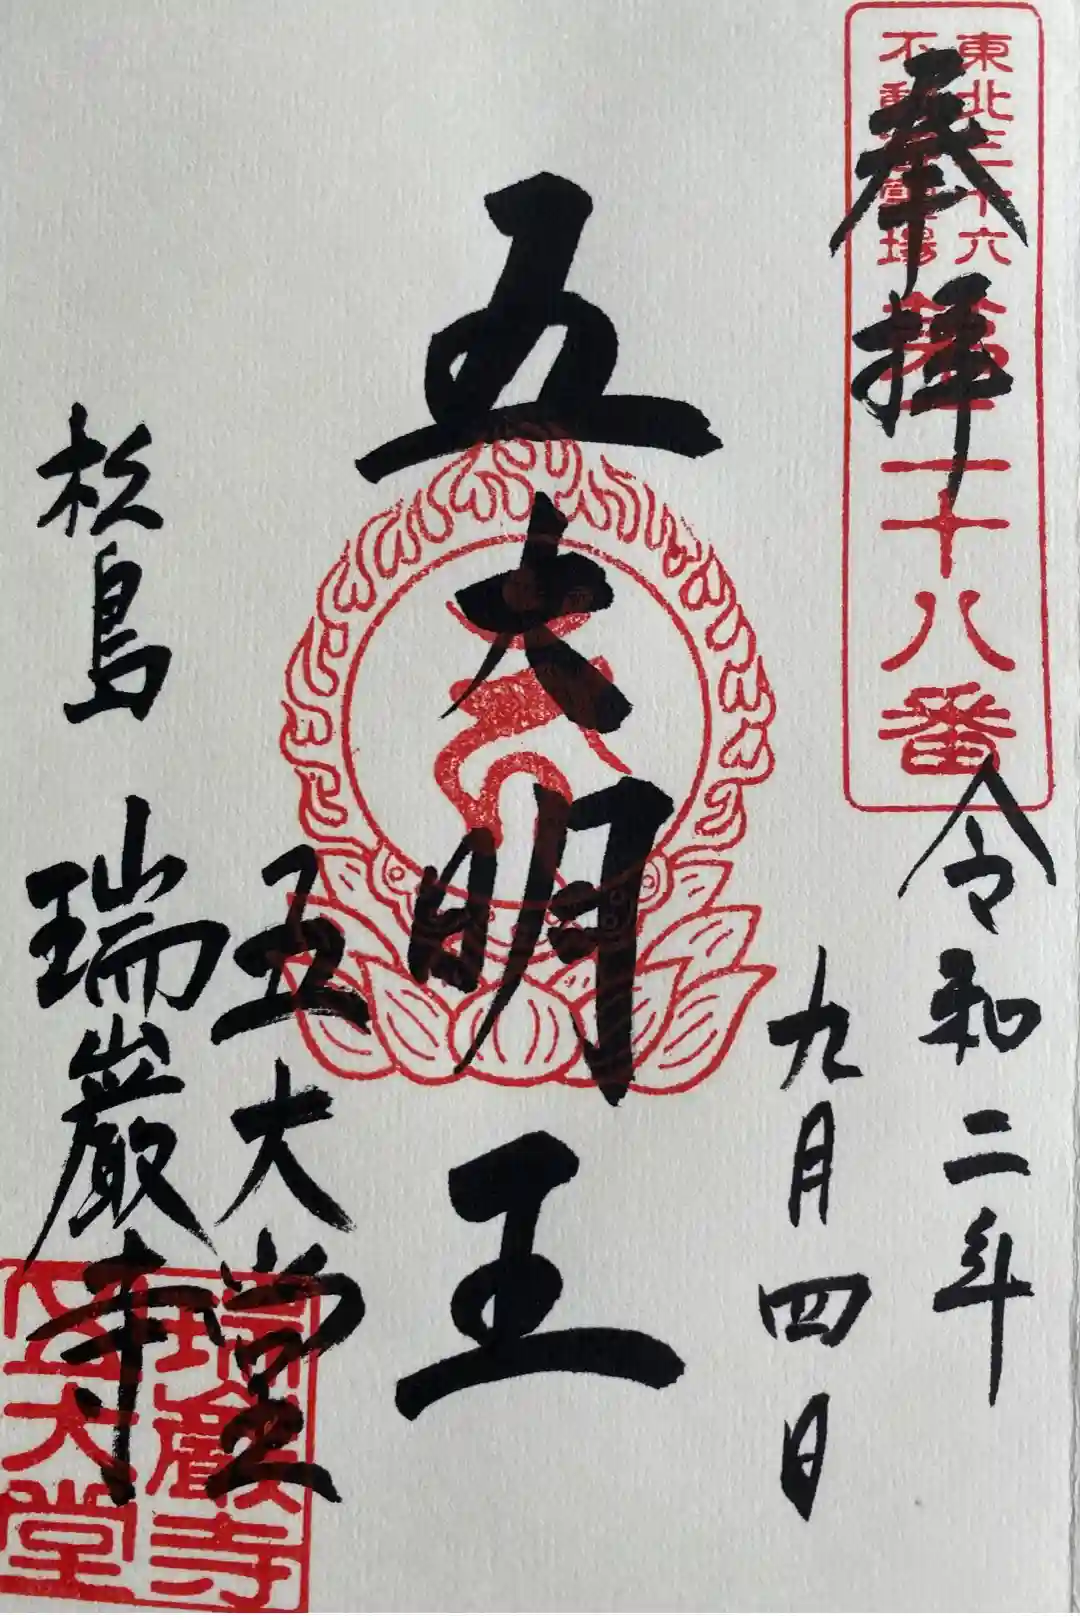 東北三十六
不動尊霊場
第二十八番
奉拝
令和二年
九月四日
五大明王
五大堂
松島 瑞巌寺
瑞巌寺
五大堂